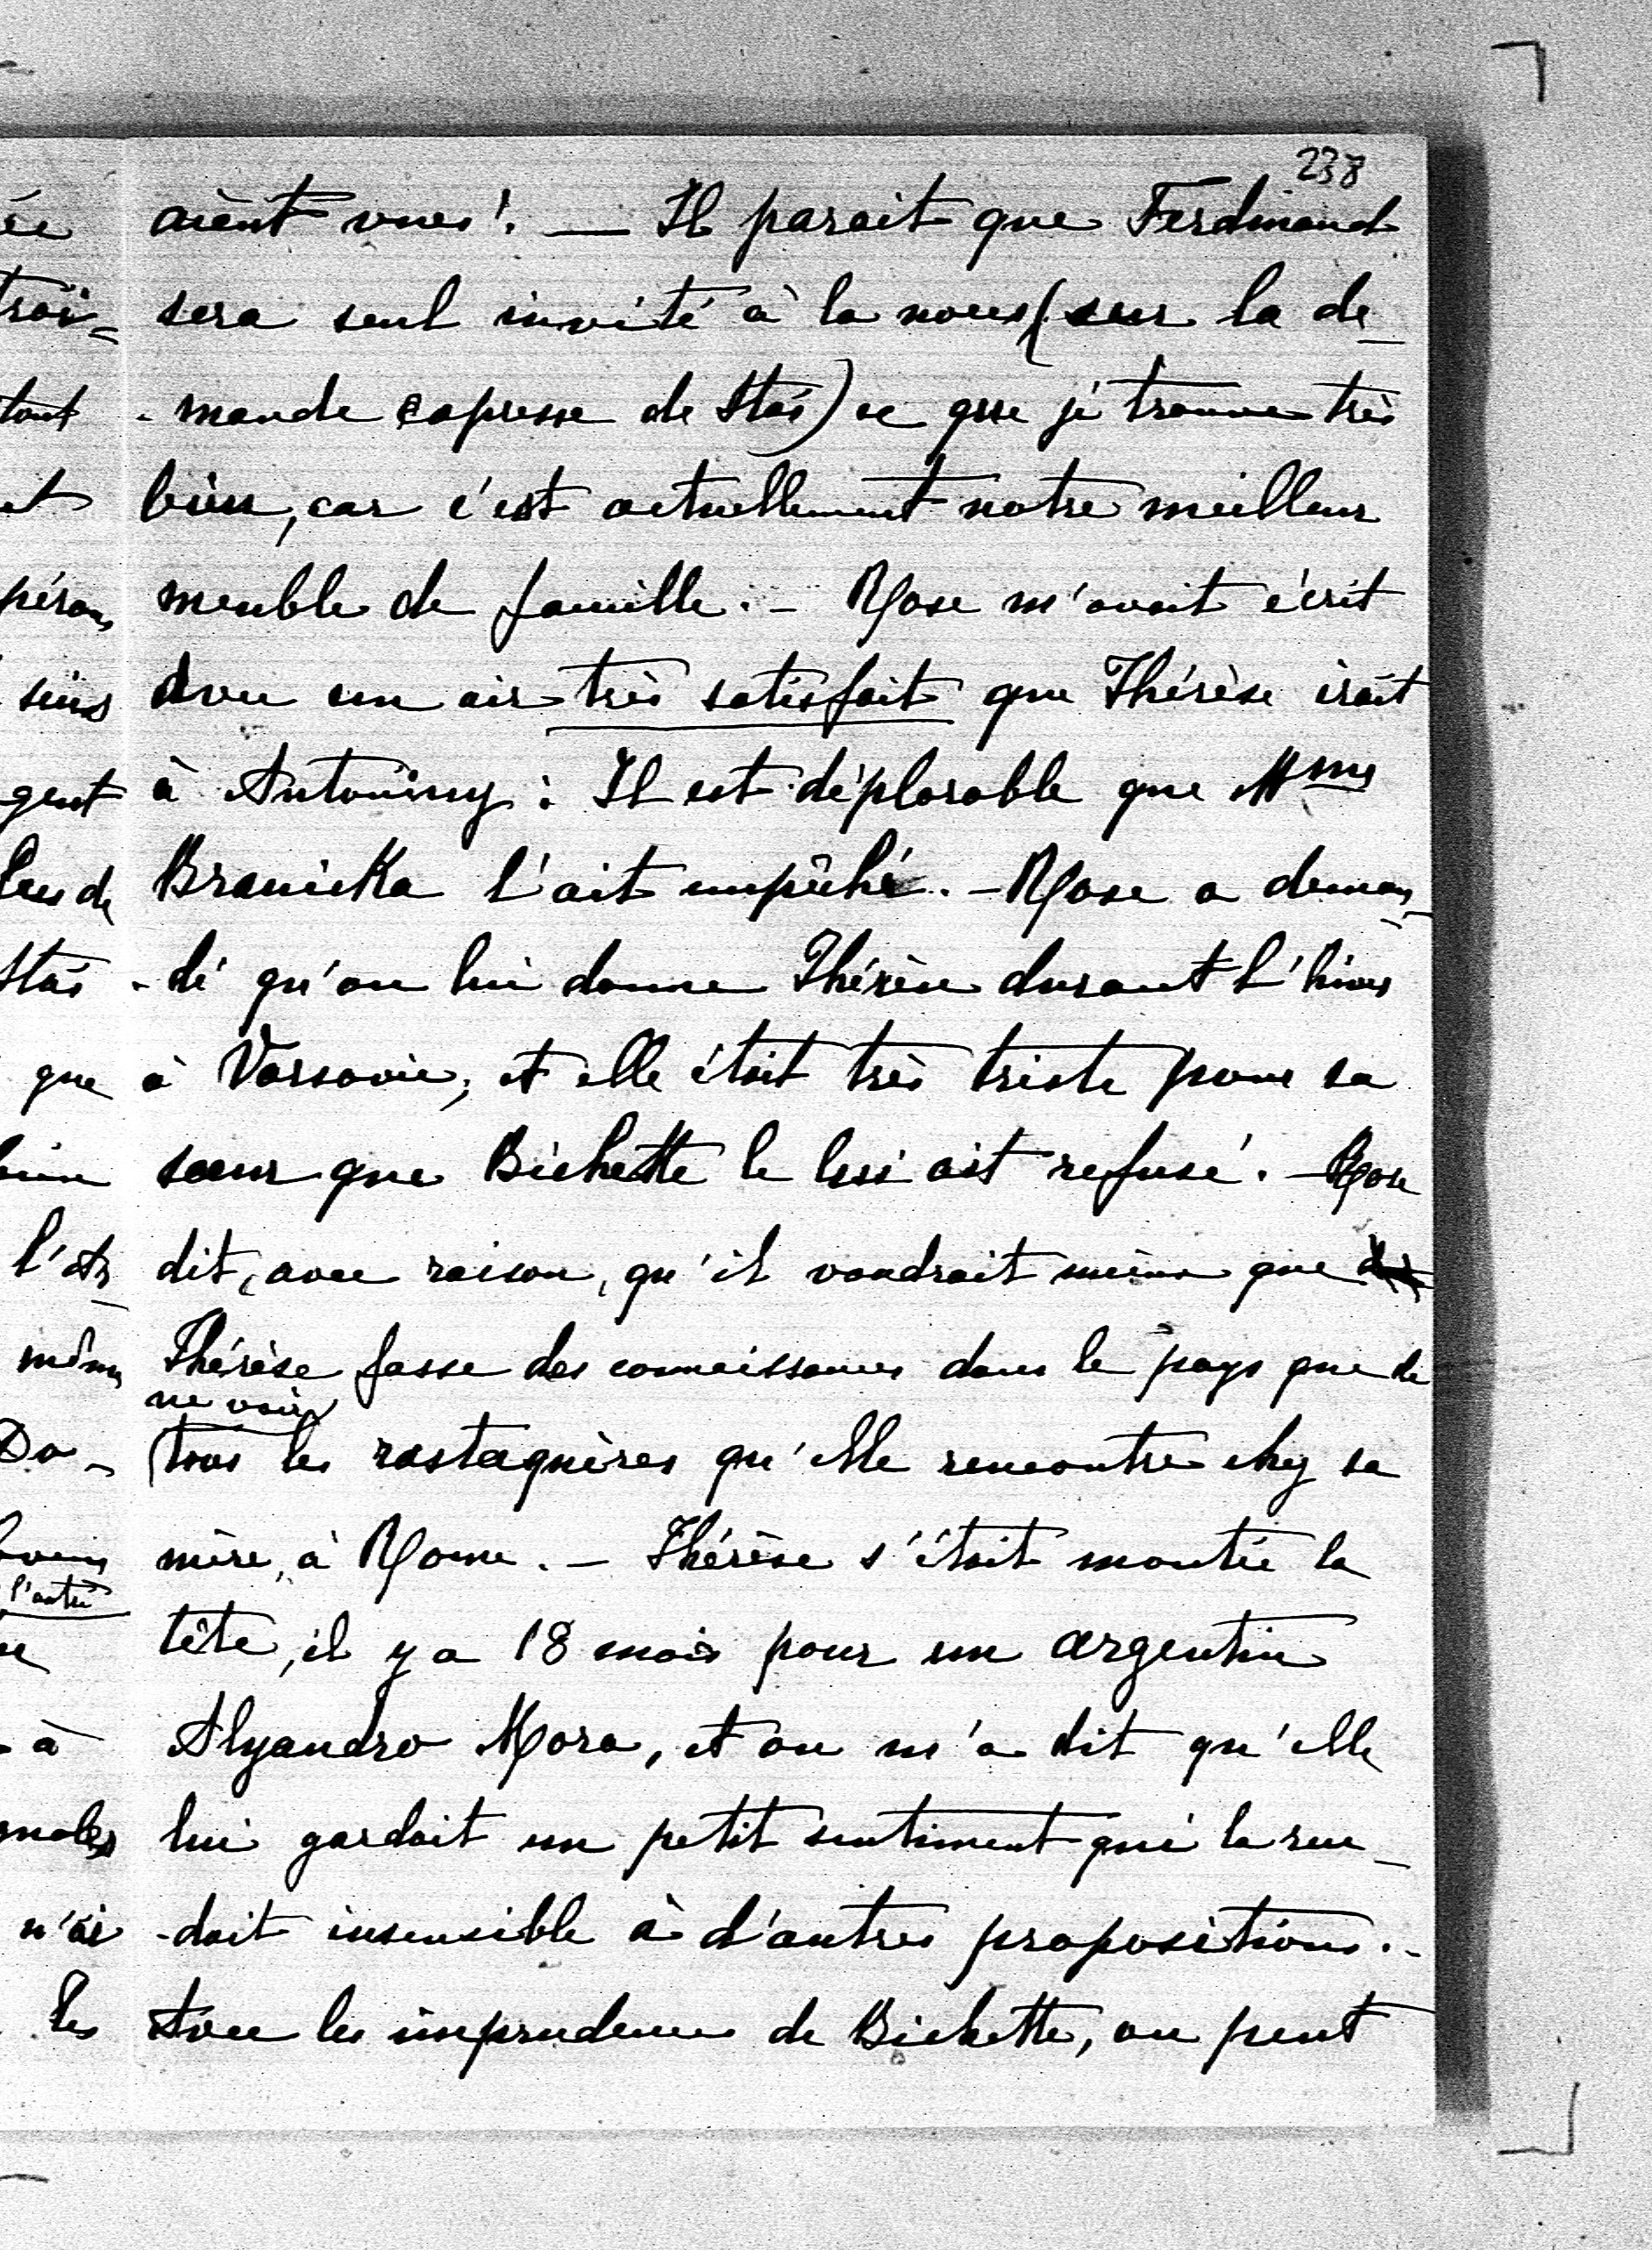 238
aient vues! — Il parait que Ferdinand
sera seul invité à la noces (sur la de-
-mande expresse de Stás) ce que je trouve très
bien, car c'est actuellement notre meilleur
meuble de famille. - Rose m'avait écrit
avec un air très satisfait que Thérèse irait
à Antoniny: Il est déplorable que Mme
Branicka l'ait empêché. - Rose a deman-
-dé qu'on lui donne Thérèse durant l'hiver
à Varsovie, et elle était très triste pour sa
sœur que Bichette le lui ait refusé. - Rose
dit, avec raison, qu'il vaudrait mieux que
Thérèse fasse des connaissances dans le pays que de
ne voir
tous les rastaquères qu'elle rencontre chez sa
mère, à Rome. - Thérèse s'était montée la
tête, il y a 18 mois pour un argentin
Alyandro Mora, et on m'a dit qu'elle
lui gardait un petit sentiment qui la ren-
-dait insensible à d'autres propositions. -
Avec les imprudences de Bichette, on peut